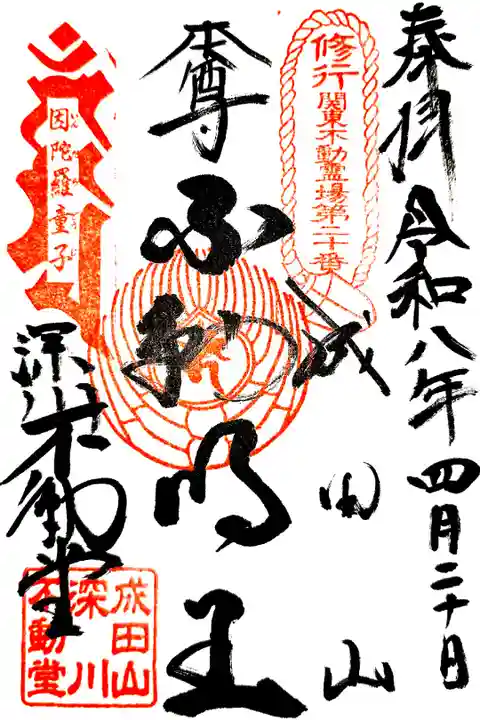 奉拝 令和八年四月二十日
修行
関東不動霊場第二十番
成田山
本尊 不動明王
因陀羅童子
深川不動堂
成田山
深川
不動堂